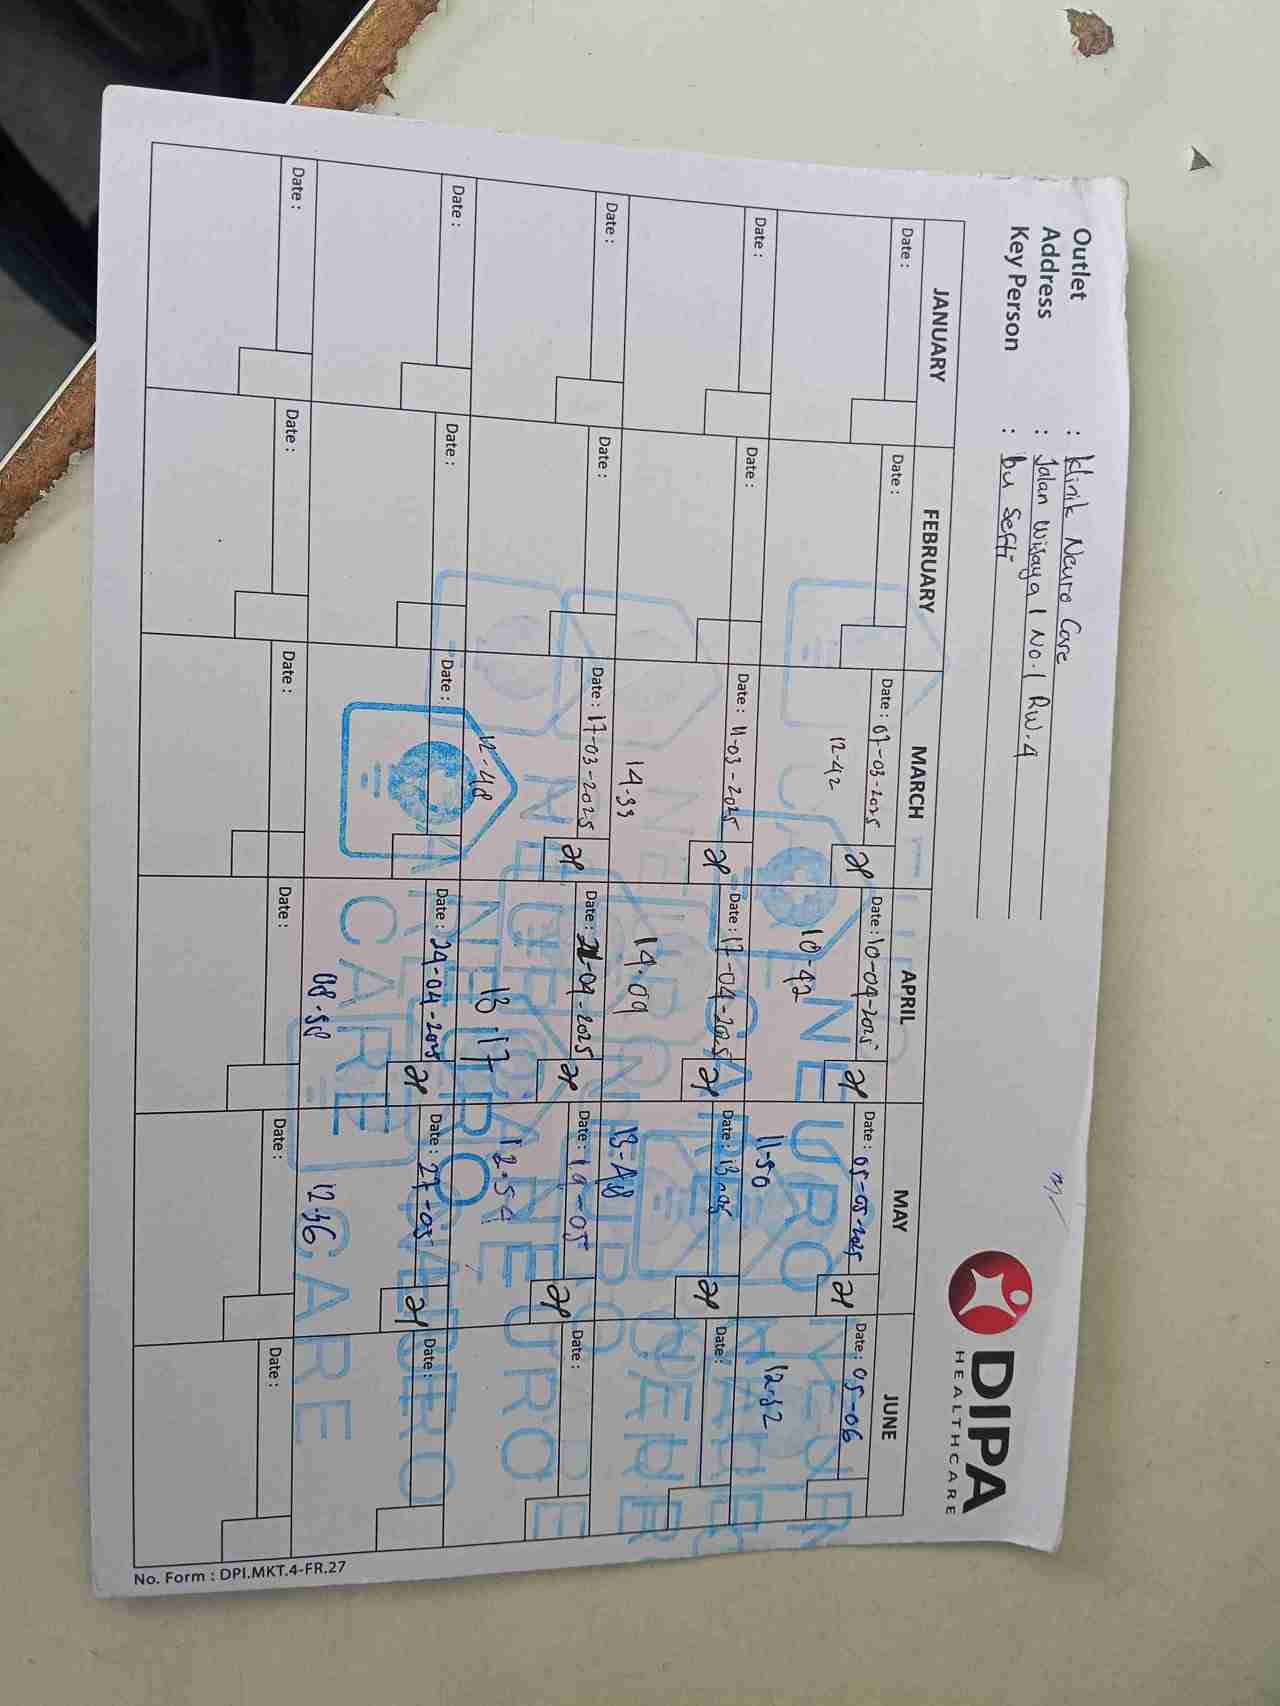 Outlet : Klinik Neuro Care
Address : Jalan Wijaya 1 No.1 RW.4
Key Person : bu Sefti
DIPA
HEALTHCARE
JANUARY FEBRUARY MARCH APRIL MAY JUNE
Date : Date : Date : 07-03-2025 Date : 10-04-2025 Date : 05-05-2025 Date : 05-06
12-42 10-42 11-50 12-32
Date : Date : Date : 11-03-2025 Date : 17-04-2025 Date : 13-05 Date :
14-33 14.09 13-48
Date : Date : Date : 17-03-2025 Date : 21-04-2025 Date : 19-05 Date :
12-48 13.17 12.54
Date : Date : Date : Date : 24-04-2025 Date : 27-05 Date :
08-58 12.36
Date : Date : Date : Date : Date : Date :
NEURO
CARE
No. Form : DPI.MKT.4-FR.27